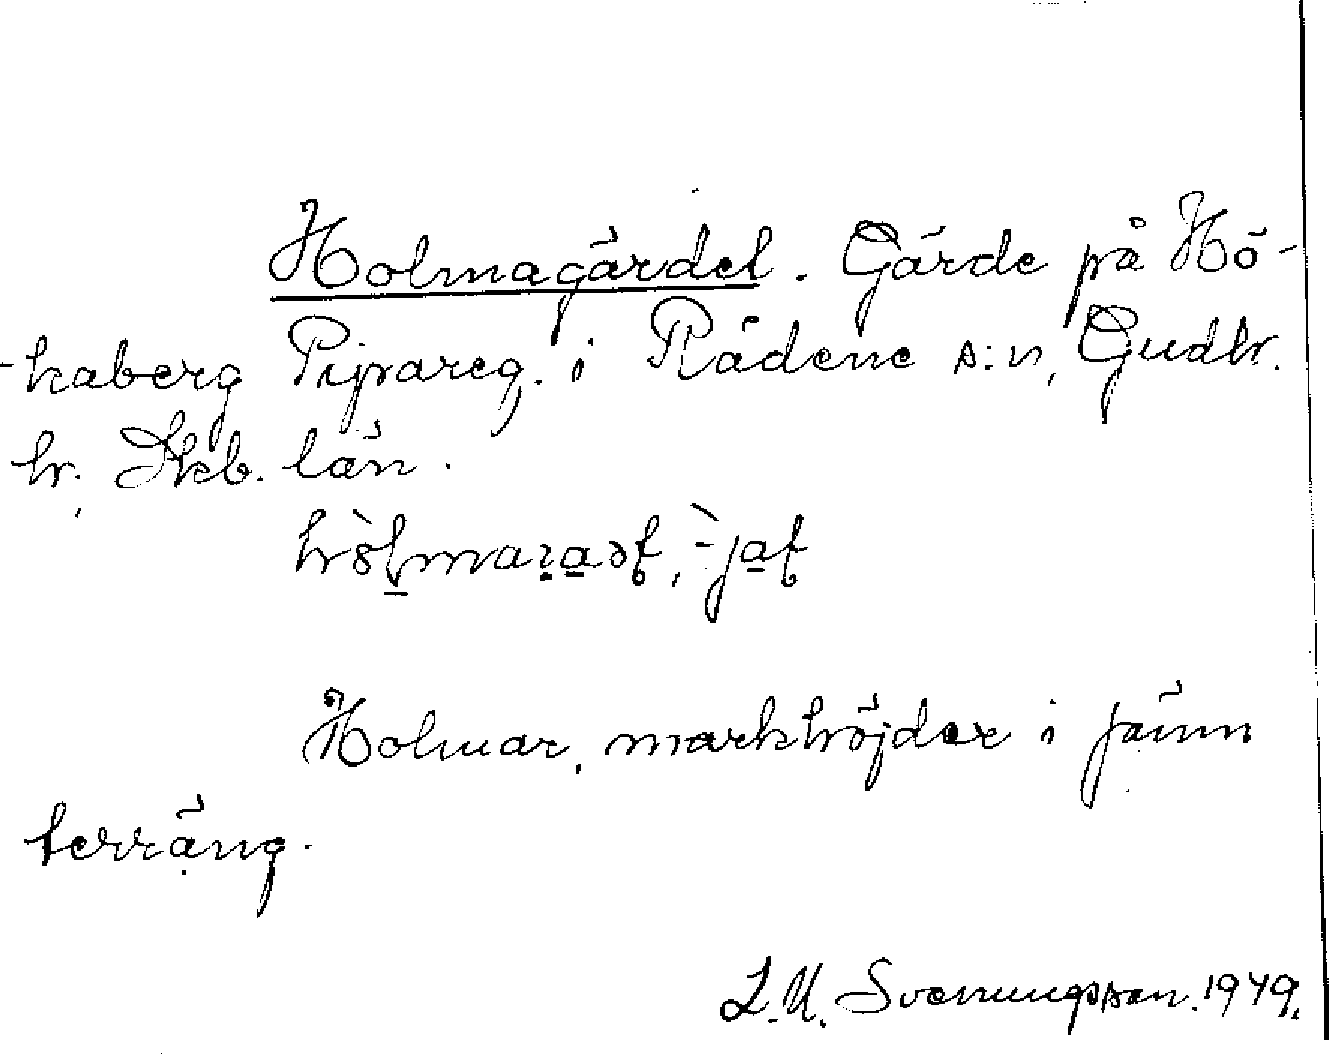 Holmagärdet. Gärde på Hö-
-kaberg Pipareg. i Rådene s:n, Gudh.
h. Skb. län.
Holmar, markhöjder i jämn
terräng.
L.U. Svenungsson. 1949.